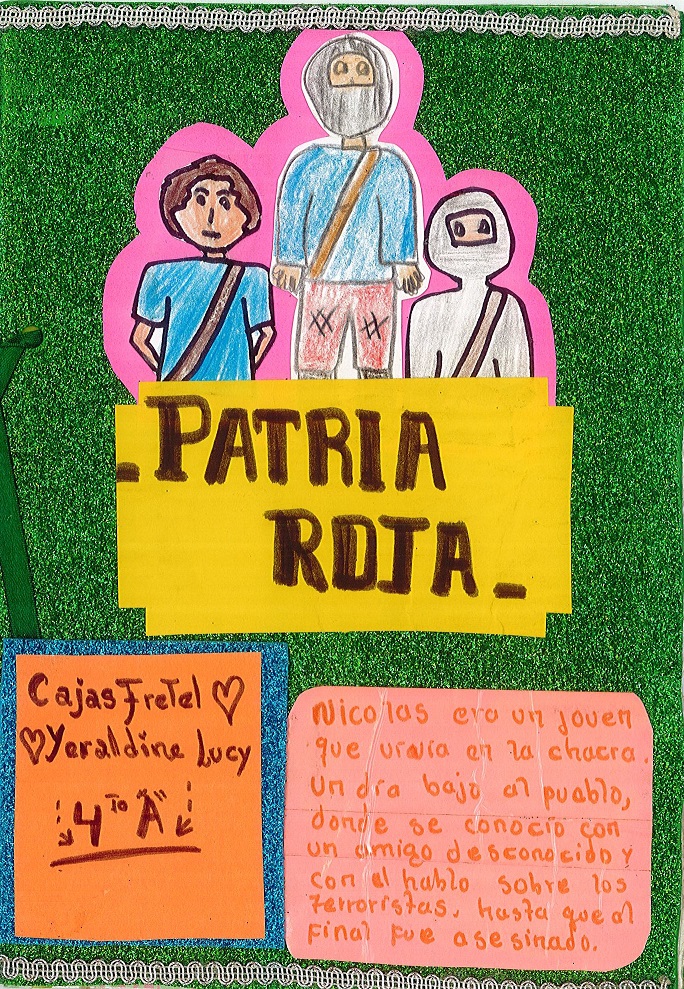 -PATRIA
ROJA-
Cajas Fretel
Yeraldine Lucy
4TO "A"
Nicolas era un joven
que vivia en la chacra.
un dia bajo al pueblo,
donde se conocio con
un amigo desconocido y
con el hablo sobre los
terroristas. hasta que al
final fue asesinado.